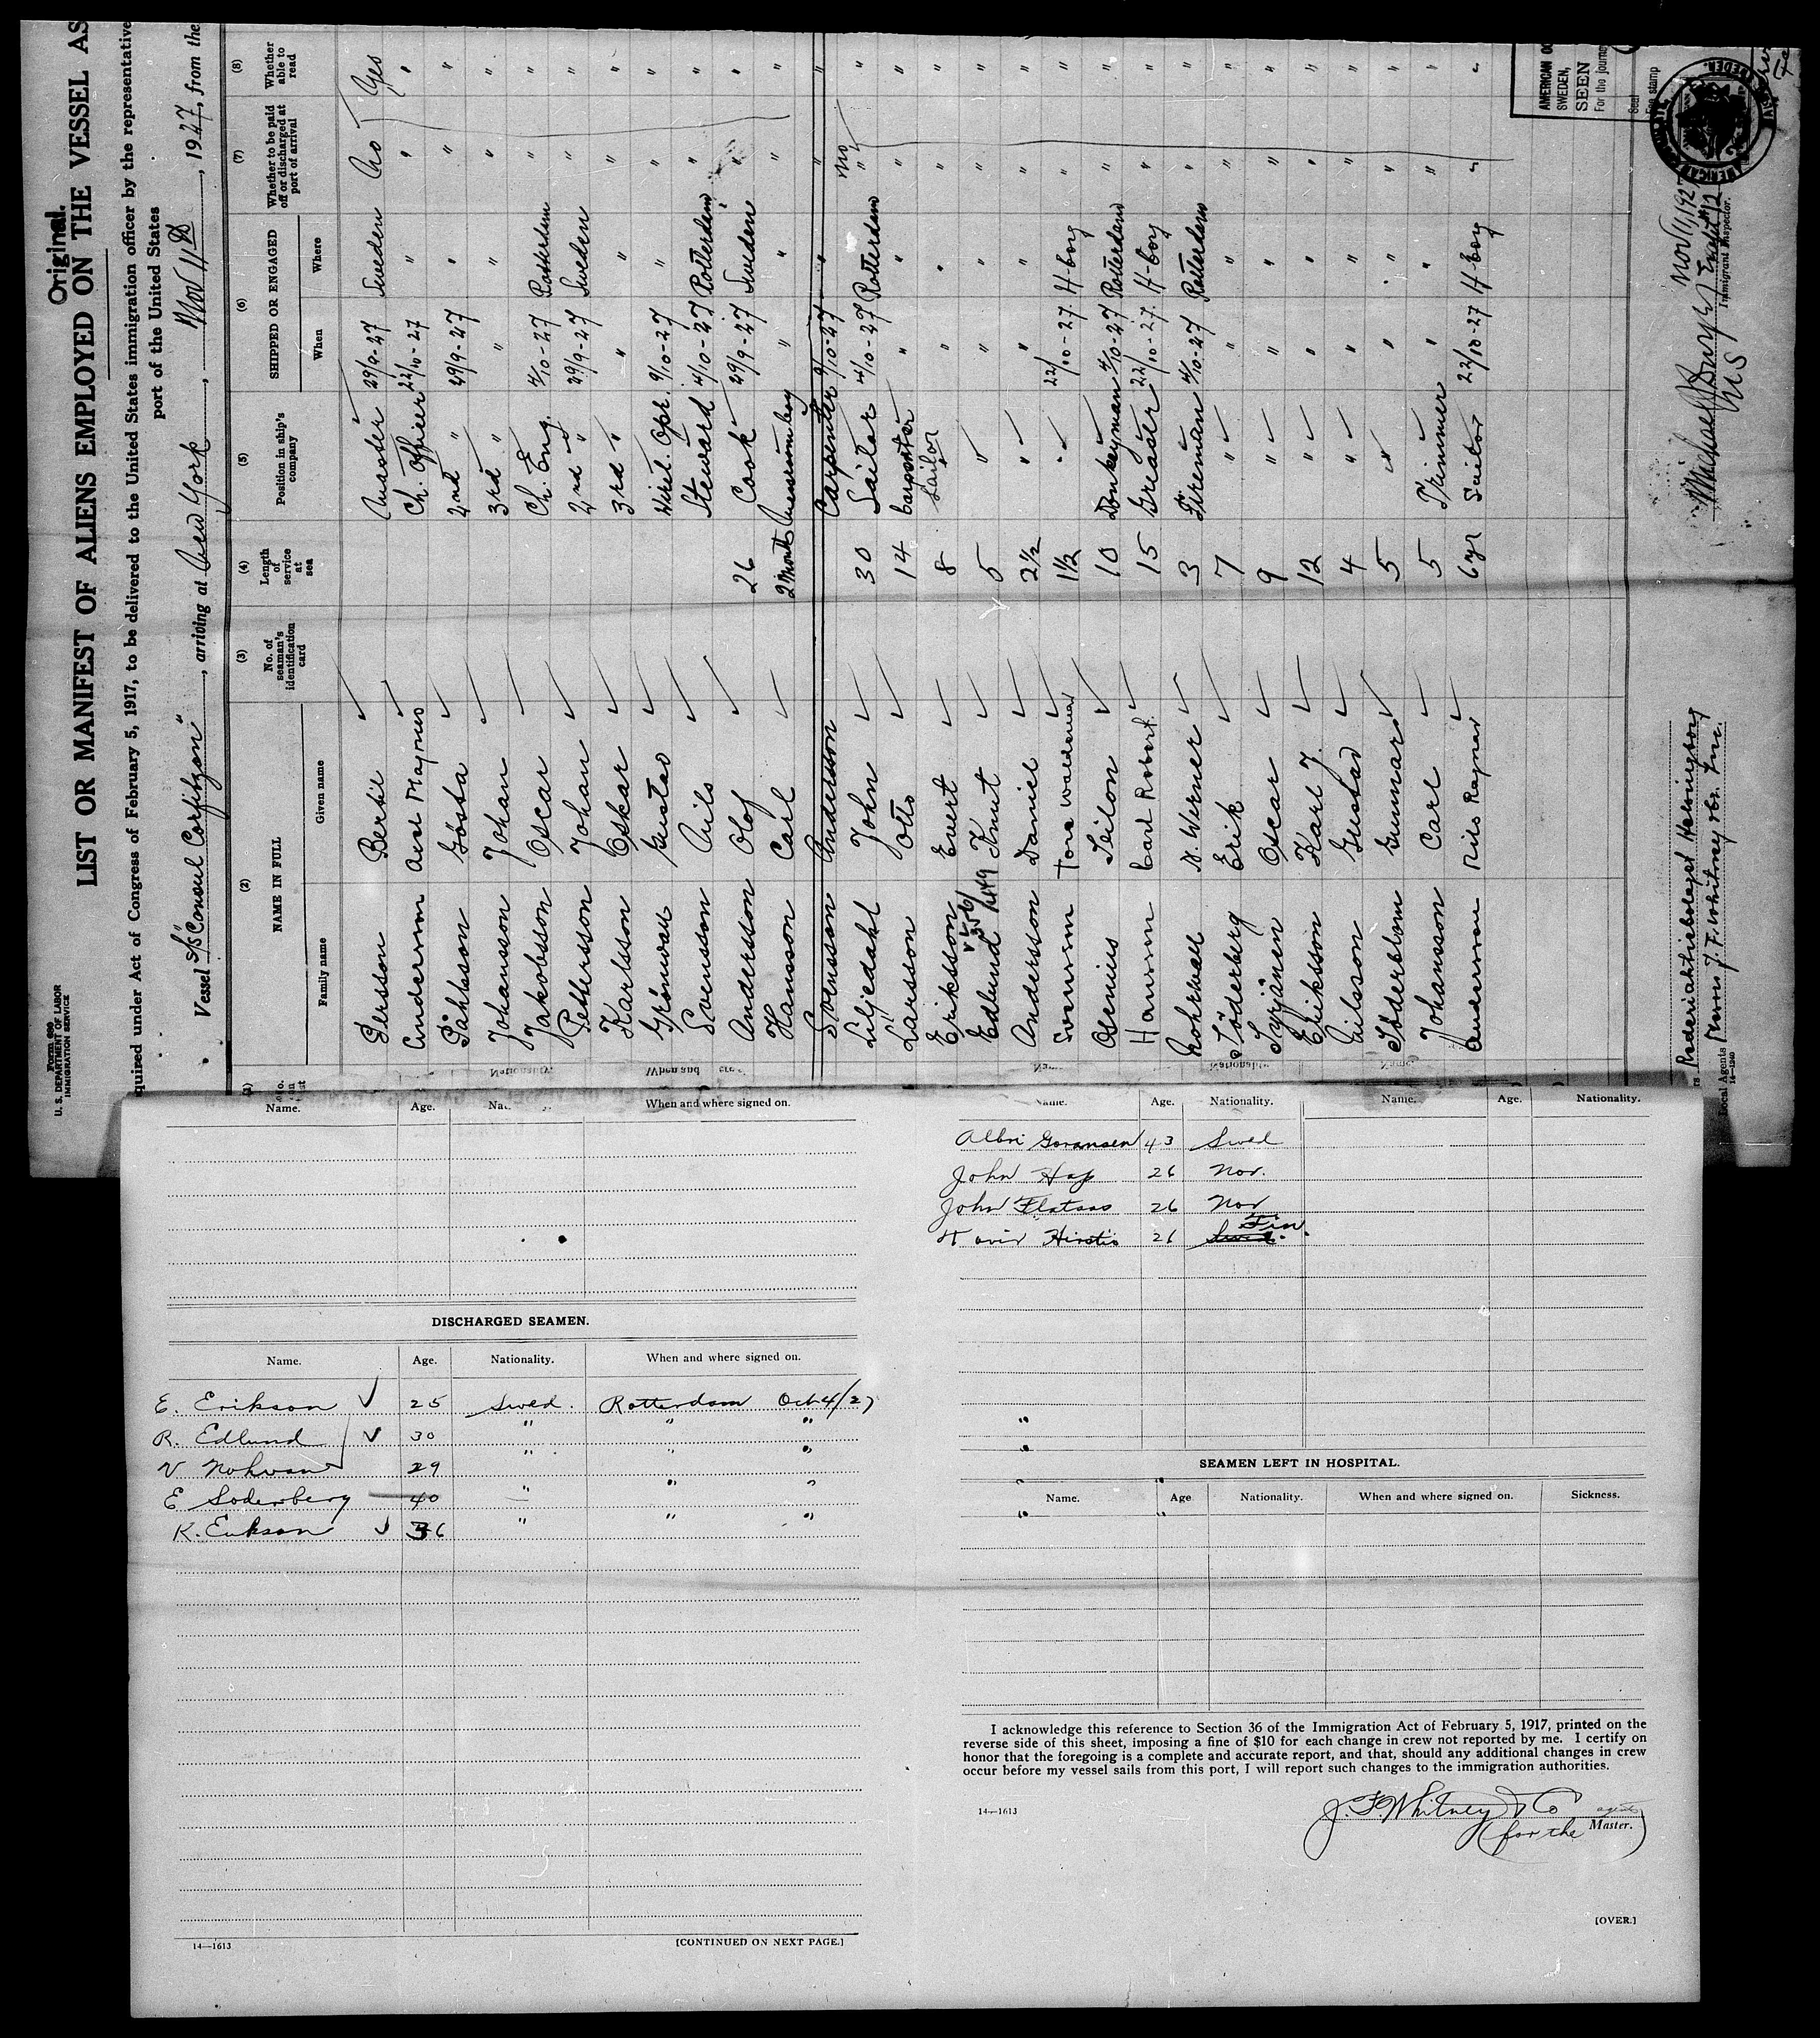 Form 689
U. S. DEPARTMENT OF LABOR
IMMIGRATION SERVICE
Original.
LIST OR MANIFEST OF ALIENS EMPLOYED ON THE VESSEL AS
quired under Act of Congress of February 5, 1917, to be delivered to the United States immigration officer by the representative
port of the United States
Vessel S/S "Consul Corfitzon", arriving at New York, Nov 11th, 1927, from the
(2) (3) (4) (5) (6) (7) (8)
NAME IN FULL
Family name Given name
No. of seaman's identification card
Length of service at sea
Position in ship's company
SHIPPED OR ENGAGED
When Where
Whether to be paid off or discharged at port of arrival
Whether able to read
Persson Bertil Master 29/9-27 Sweden No Yes
Anderson Axel Magnus Ch. Officer 22/10-27 " " "
Påhlsson Gösta 2nd " 29/9-27 " " "
Johansson Johan 3rd " " " " "
Jakobsson Oscar Ch. Eng. 4/10-27 Rotterdam " "
Pettersson Johan 2nd " 29/9-27 Sweden " "
Karlsson Oskar 3rd " " " " "
Grönwall Gustav Wirel. Opr. 9/10-27 " " "
Svensson Nils Steward 4/10-27 Rotterdam " "
Andersson Olof 26 Cook 29/9-27 Sweden " "
Hansson Carl 2 months Messroomboy " " " "
Svensson Andersson Carpenter 9/10-27 " " "
Liljedahl John 30 Sailor 4/10-27 Rotterdam No " "
Larsson Otto 14 Carpenter " " " "
Eriksson Evert 8 Sailor " " " "
Edlund Knut 5 " " " " "
Andersson Daniel 2½ " " " " "
Svenson Tore Waldemar 1½ " 22/10-27 H-borg " "
Osenius Seilon 10 Donkeyman 4/10-27 Rotterdam " "
Hanson Carl Robert 15 Greaser 22/10-27 H-borg " "
N. Werner 3 Fireman 4/10-27 Rotterdam " "
Söderberg Erik 7 " " " " "
Syrjänen Oscar 9 " " " " "
Eriksson Karl J. 12 " " " " "
Nilsson Gustav 4 " " " " "
Söderblom Gunnar 5 " " " " "
Johansson Carl 5 Trimmer " " " "
Anderson Nils Ragnar 6 yr Sailor 22/10-27 H-borg " "
Rederiaktiebolaget Helsingborg
Local Agents Messrs J. F. Whitney & Co. Inc.
14-1240
Nov 11, 1927
Immigrant Inspector.
AMERICAN
SWEDEN,
SEEN
For the journey
Seal
Fee stamp
Name. Age. When and where signed on.
DISCHARGED SEAMEN.
Name. Age. Nationality. When and where signed on.
E. Erikson 25 Swed. Rotterdam Oct 4/27
R. Edlund 30 " " "
V Nohvan 29 " " "
E Soderberg 40 " " "
K. Erikson 36 " " "
14—1613 [CONTINUED ON NEXT PAGE.]
Name. Age. Nationality. Name. Age. Nationality.
Goransen 43 Swed
John 26 Nor.
John Flatsas 26 Nor
26 Fin.
SEAMEN LEFT IN HOSPITAL.
Name. Age Nationality. When and where signed on. Sickness.
I acknowledge this reference to Section 36 of the Immigration Act of February 5, 1917, printed on the
reverse side of this sheet, imposing a fine of $10 for each change in crew not reported by me. I certify on
honor that the foregoing is a complete and accurate report, and that, should any additional changes in crew
occur before my vessel sails from this port, I will report such changes to the immigration authorities.
14—1613
J. F. Whitney & Co agents
(for the Master.)
[OVER.]